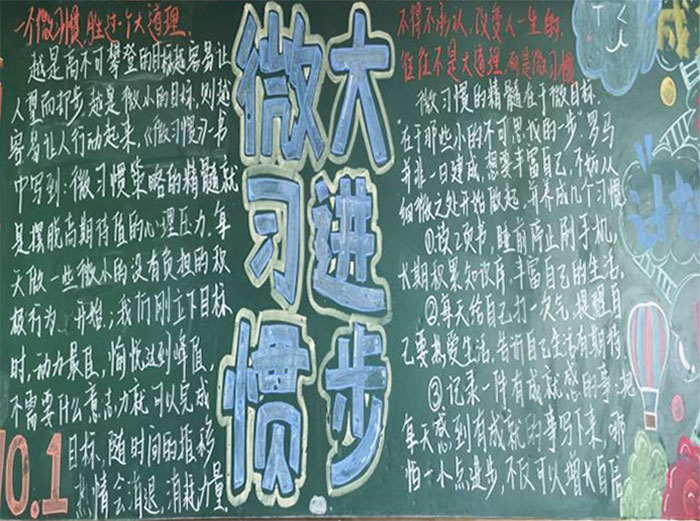 一个微习惯,胜过一个大道理.
越是高不可攀登的目标越容易让
人望而却步,越是微小的目标,则越
容易让人行动起来,《微习惯》书
中写到:微习惯策略的精髓就
是摆脱高期待值的心理压力.每
天做一些微小的没有负担的积
极行为.开始,我们刚立下目标
时,动力最足,愉悦达到峰值,
不需要什么意志力就可以完成
目标,随时间的推移
热情会消退,消耗力量.
0.1
微习惯
大进步
不得不承认,改变人一生的.
往往不是大道理,而是微习惯
微习惯的精髓在于微目标.
"在于那些小的不可思议的一步".罗马
并非一日建成,想要丰富自己,不妨从
细微之处开始做起.年养成几个习惯
①读2页书,睡前停止刷手机,
长期积累知识库丰富自己的生活.
②每天给自己打一次气,提醒自
己要热爱生活.告诉自己生活有期待
③记录一件有成就感的事:把
每天感到有成就的事写下来,哪
怕一小点进步,不仅可以增长自信
计划